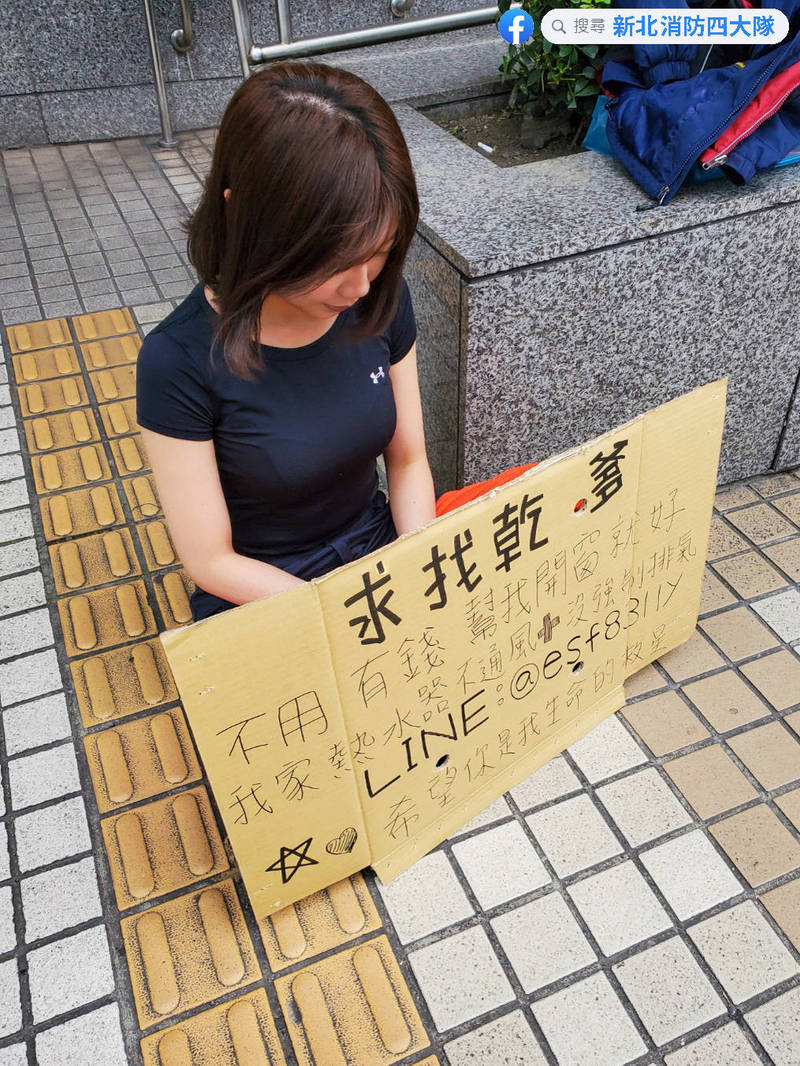 搜尋 新北消防四大隊
求找乾爹
不用有錢 幫我開窗就好
我家熱水器不通風+沒強制排氣
LINE:@esf8311y
希望你是我生命的救星